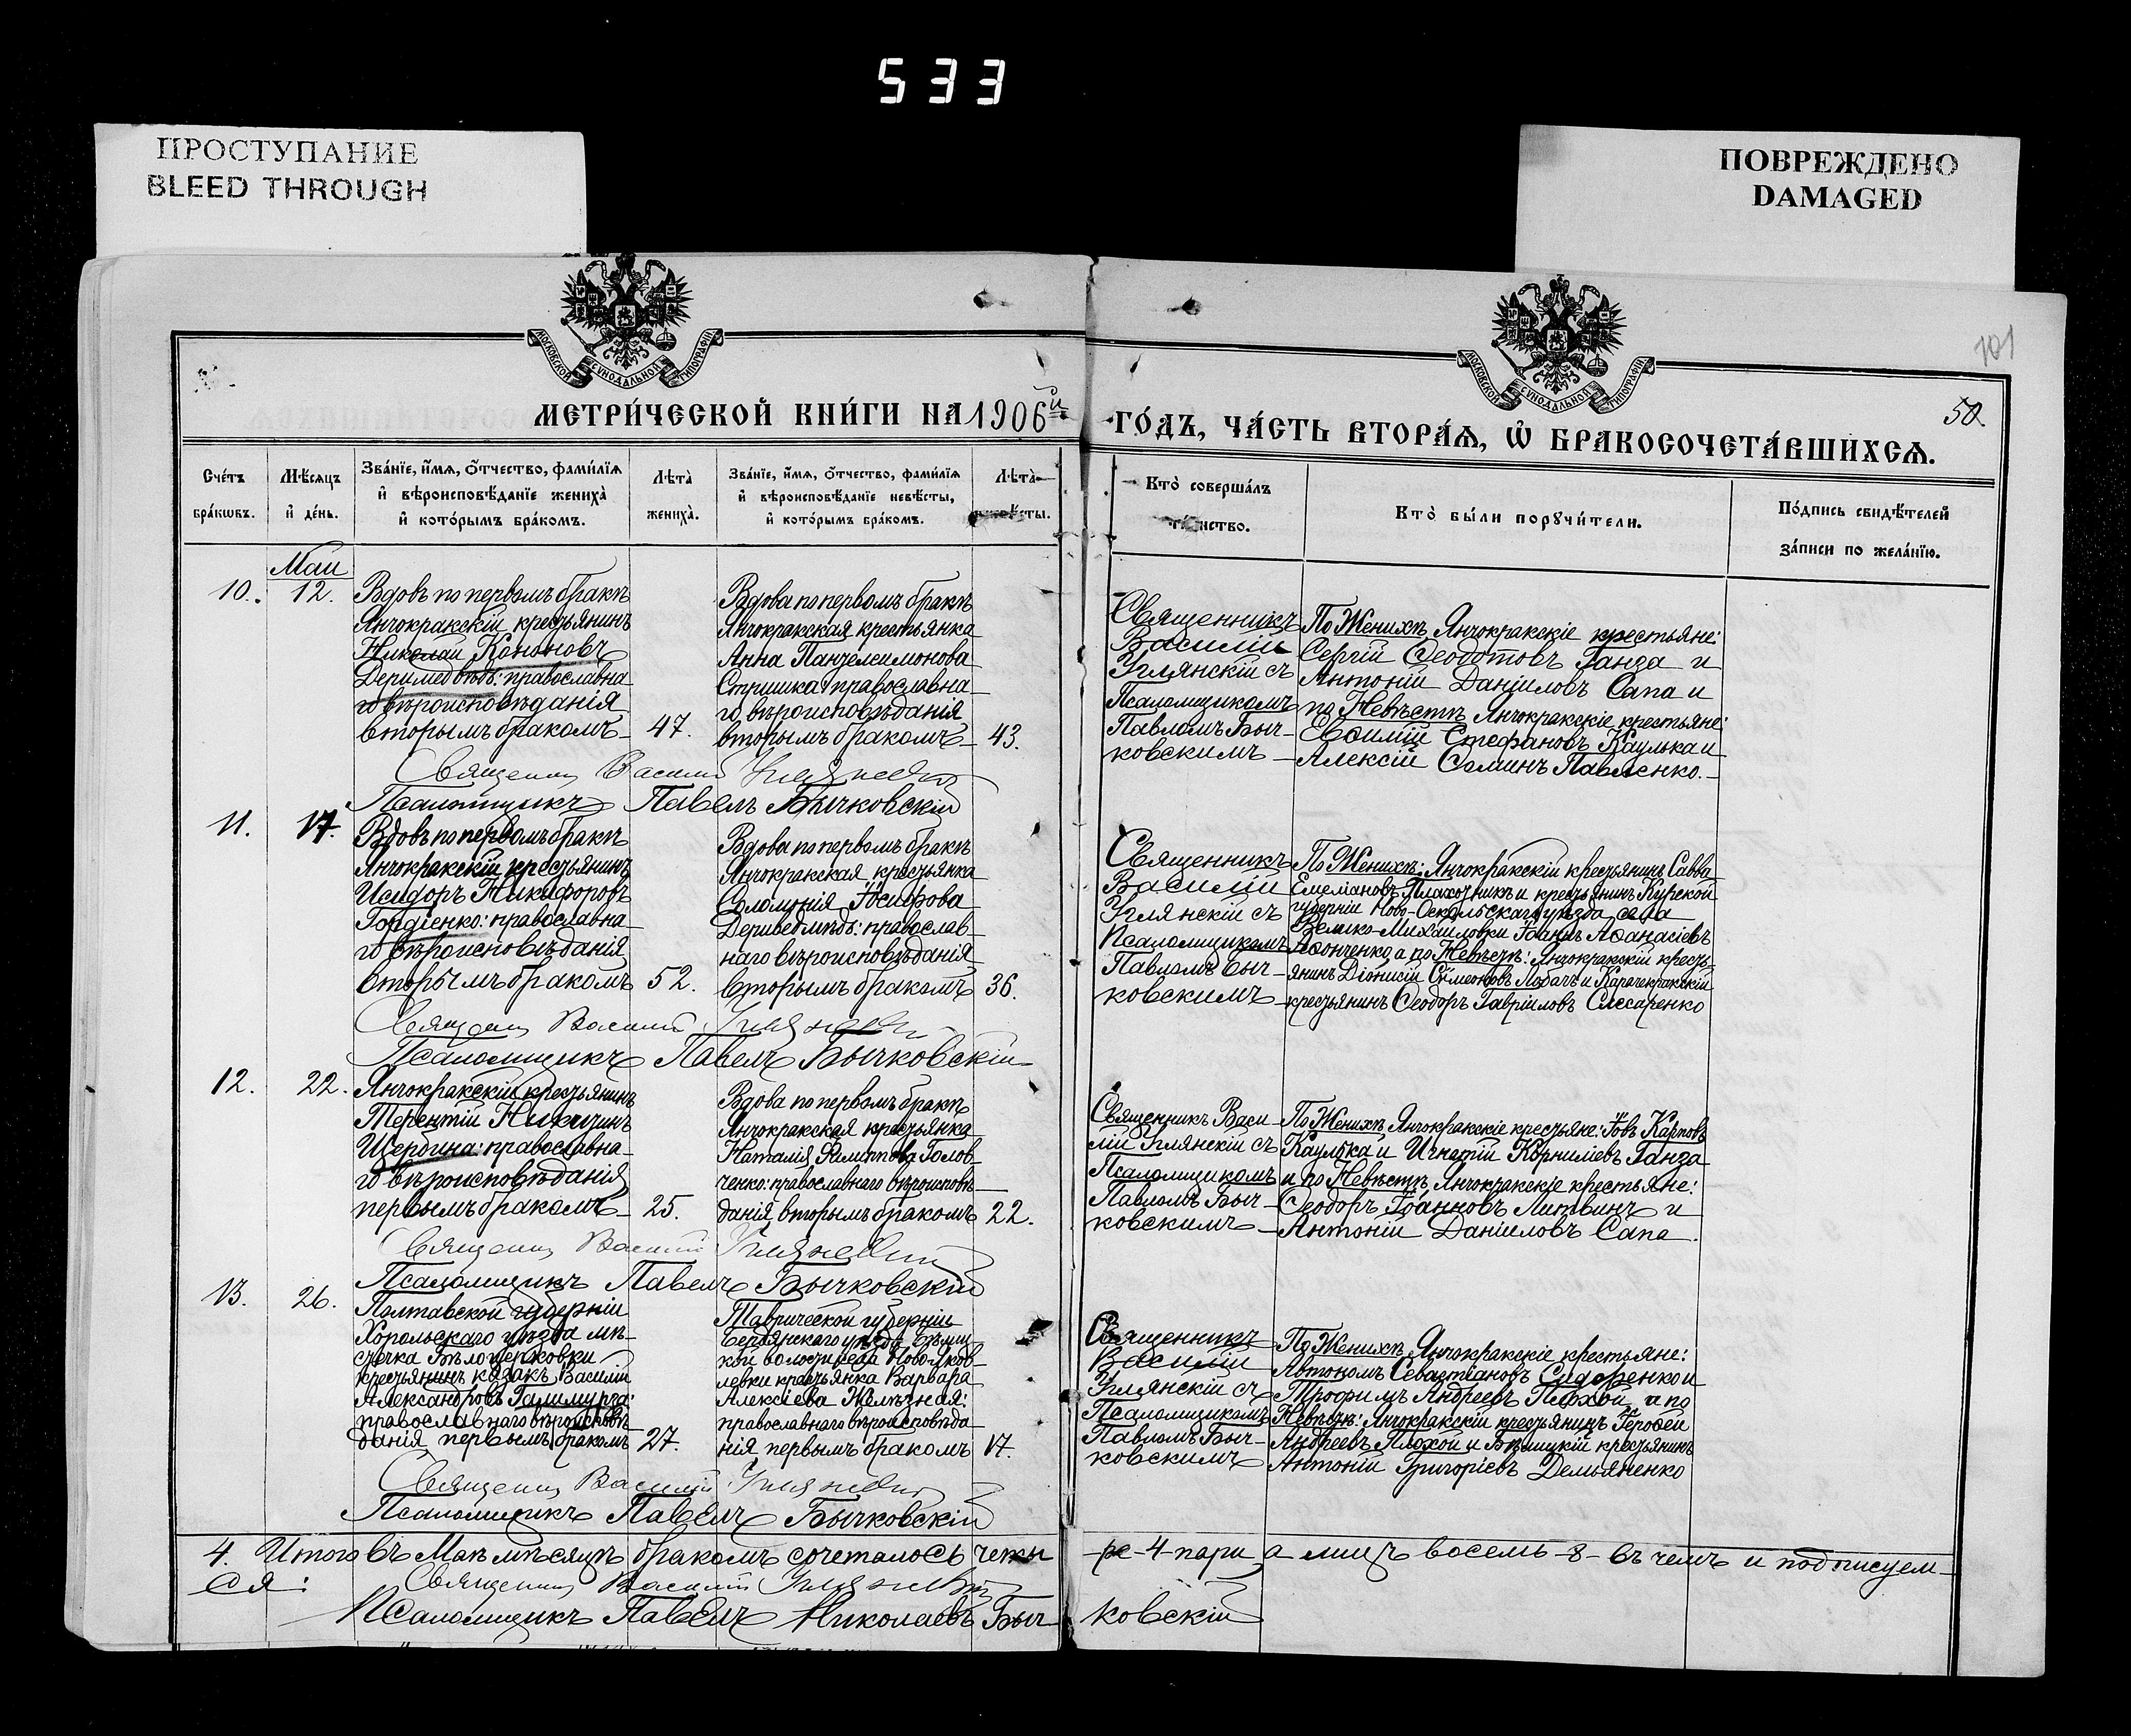 533
ПРОСТУПАНИЕ
BLEED THROUGH
ПОВРЕЖДЕНО
DAMAGED
МОСКОВСКОЙ СѴНОДАЛЬНОЙ ТИПОГРАФІИ
МОСКОВСКОЙ СѴНОДАЛЬНОЙ ТИПОГРАФІИ
101
50.
МЕТРИ́ЧЕСКОЙ КНИ́ГИ НА 1906й
ГО́ДЪ, ЧА́СТЬ ВТОРА́Я, Ѡ БРАКОСОЧЕТА́ВШИХСЯ.
Сче́тъ
бра́кѡвъ.
Мѣсяцъ
и де́нь.
Зва́нїе, и́мя, о́тчество, фами́лїя
и вѣроисповѣ́данїе жениха̀
и кото́рымъ бра́комъ.
Лѣта̀
жениха̀.
Зва́нїе, и́мя, о́тчество, фами́лїя
и вѣроисповѣ́данїе невѣ́сты,
и кото́рымъ бра́комъ.
Лѣта̀
невѣ́сты.
Кто̀ соверша́лъ
таинство.
Кто̀ бы́ли порꙋчи́тели.
По́дпись свидѣ́телей
за́писи по жела́нїю.
Май
10. 12.
Вдовъ по первомъ бракѣ
Янчокракскій крестьянинъ
Николай Кононовъ
Деримедвѣдь: православна-
го вѣроисповѣданія
вторымъ бракомъ 47.
Вдова по первомъ бракѣ
Янчокракская крестьянка
Анна Пантелеимонова
Стришка православна-
го вѣроисповѣданія
вторымъ бракомъ 43.
Священникъ
Василій
Углянскій съ
Псаломщикомъ
Павломъ Быч-
ковскимъ
По Женихѣ Янчокракскіе крестьяне:
Сергій Ѳеодотовъ Ганза и
Антоній Даніиловъ Сапа и
по Невѣстѣ Янчокракскіе крестьяне:
Стефановъ Каулька и
Алексій Павленко.
Священник Василий Углянский
Псаломщикъ Павелъ Бычковскій
11. 17.
Вдовъ по первомъ бракѣ
Янчокракскій крестьянинъ
Исидоръ Никифоровъ
Гордіенко: православна-
го вѣроисповѣданія
вторымъ бракомъ 52.
Вдова по первомъ бракѣ
Янчокракская крестьянка
Соломонія Іосифова
Деримедвѣдь: православ
наго вѣроисповѣданія
вторымъ бракомъ 36.
Священникъ
Василій
Углянскій съ
Псаломщикомъ
Павломъ Быч-
ковскимъ
По Женихѣ: Янчокракскій крестьянинъ Савва
Емеліановъ Плахотникъ и крестьянинъ Курской
губерніи Ново-Оскольскаго уѣзда села
Велико-Михайловки Іоаннъ Аѳанасіевъ
а по Невѣстѣ: Янчокракскій кресть-
янинъ Діонисій Сѵмеоновъ Лобачъ и Карачекракскій
крестьянинъ Ѳеодоръ Гавріиловъ Слесаренко
Священник Василий Углянский
Псаломщикъ Павелъ Бычковскій
12. 22.
Янчокракскій крестьянинъ
Терентій Никитинъ
Щербина: православна-
го вѣроисповѣданія
первымъ бракомъ 25.
Вдова по первомъ бракѣ
Янчокракская крестьянка
Наталія Филиппова Голов-
ченко: православнаго вѣроисповѣ-
данія вторымъ бракомъ 22.
Священникъ Васи-
лій Углянскій съ
Псаломщикомъ
Павломъ Быч-
ковскимъ
По Женихѣ Янчокракскіе крестьяне: Іовъ Карповъ
Каулька и Игнатій Корниліевъ Ганза
и по Невѣстѣ Янчокракскіе крестьяне:
Ѳеодоръ Іоанновъ Литвинъ и
Антоній Даніиловъ Сапа.
Священник Василий Углянский
Псаломщикъ Павелъ Бычковскій
13. 26.
Полтавской губерніи
Хорольскаго уѣзда мѣ-
стечка Бѣлоцерковки
крестьянинъ козакъ Василій
Александровъ
православнаго вѣроисповѣ-
данія первымъ бракомъ 27.
Таврической губерніи
Бердянскаго уѣзда Бѣлиц
кой волости села Новояков-
левки крестьянка Варвара
Алексіева
православнаго вѣроисповѣда
нія первымъ бракомъ 17.
Священникъ
Василій
Углянскій съ
Псаломщикомъ
Павломъ Быч-
ковскимъ
По Женихѣ Янчокракскіе крестьяне:
Автономъ Севастіановъ Сидоренко и
Трофимъ Андреевъ Плохой, а по
Невѣстѣ: Янчокракскій крестьянинъ Героѳей
Андреевъ Плохой и Бѣлицкій крестьянинъ
Антоній Григоріевъ Демьяненко
Священник Василий Углянский
Псаломщикъ Павелъ Бычковскій
4. Итого въ Маѣ мѣсяцѣ бракомъ сочеталось четы
ре -4- пары а лицъ восемь -8- въ чемъ и подписуем-
ся: Священник Василий Углянский
Псаломщикъ Павелъ Николаевъ Быч
ковскій